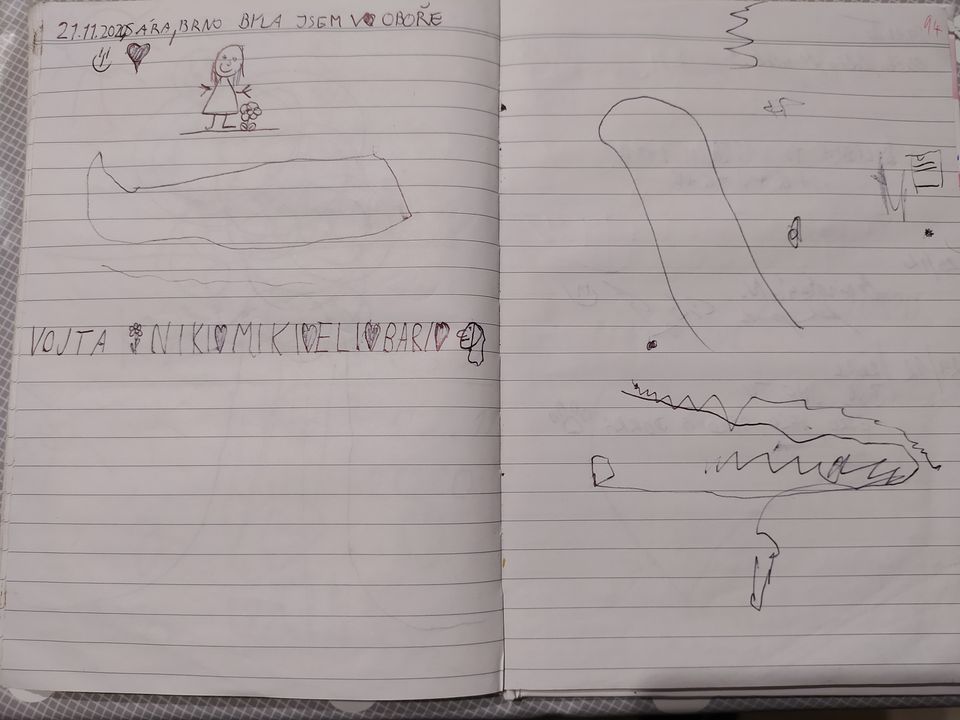 21.11.2025 SÁRA, BRNO BYLA JSEM V OBOŘE
94
VOJTA NIKI MIKI ELI BARI